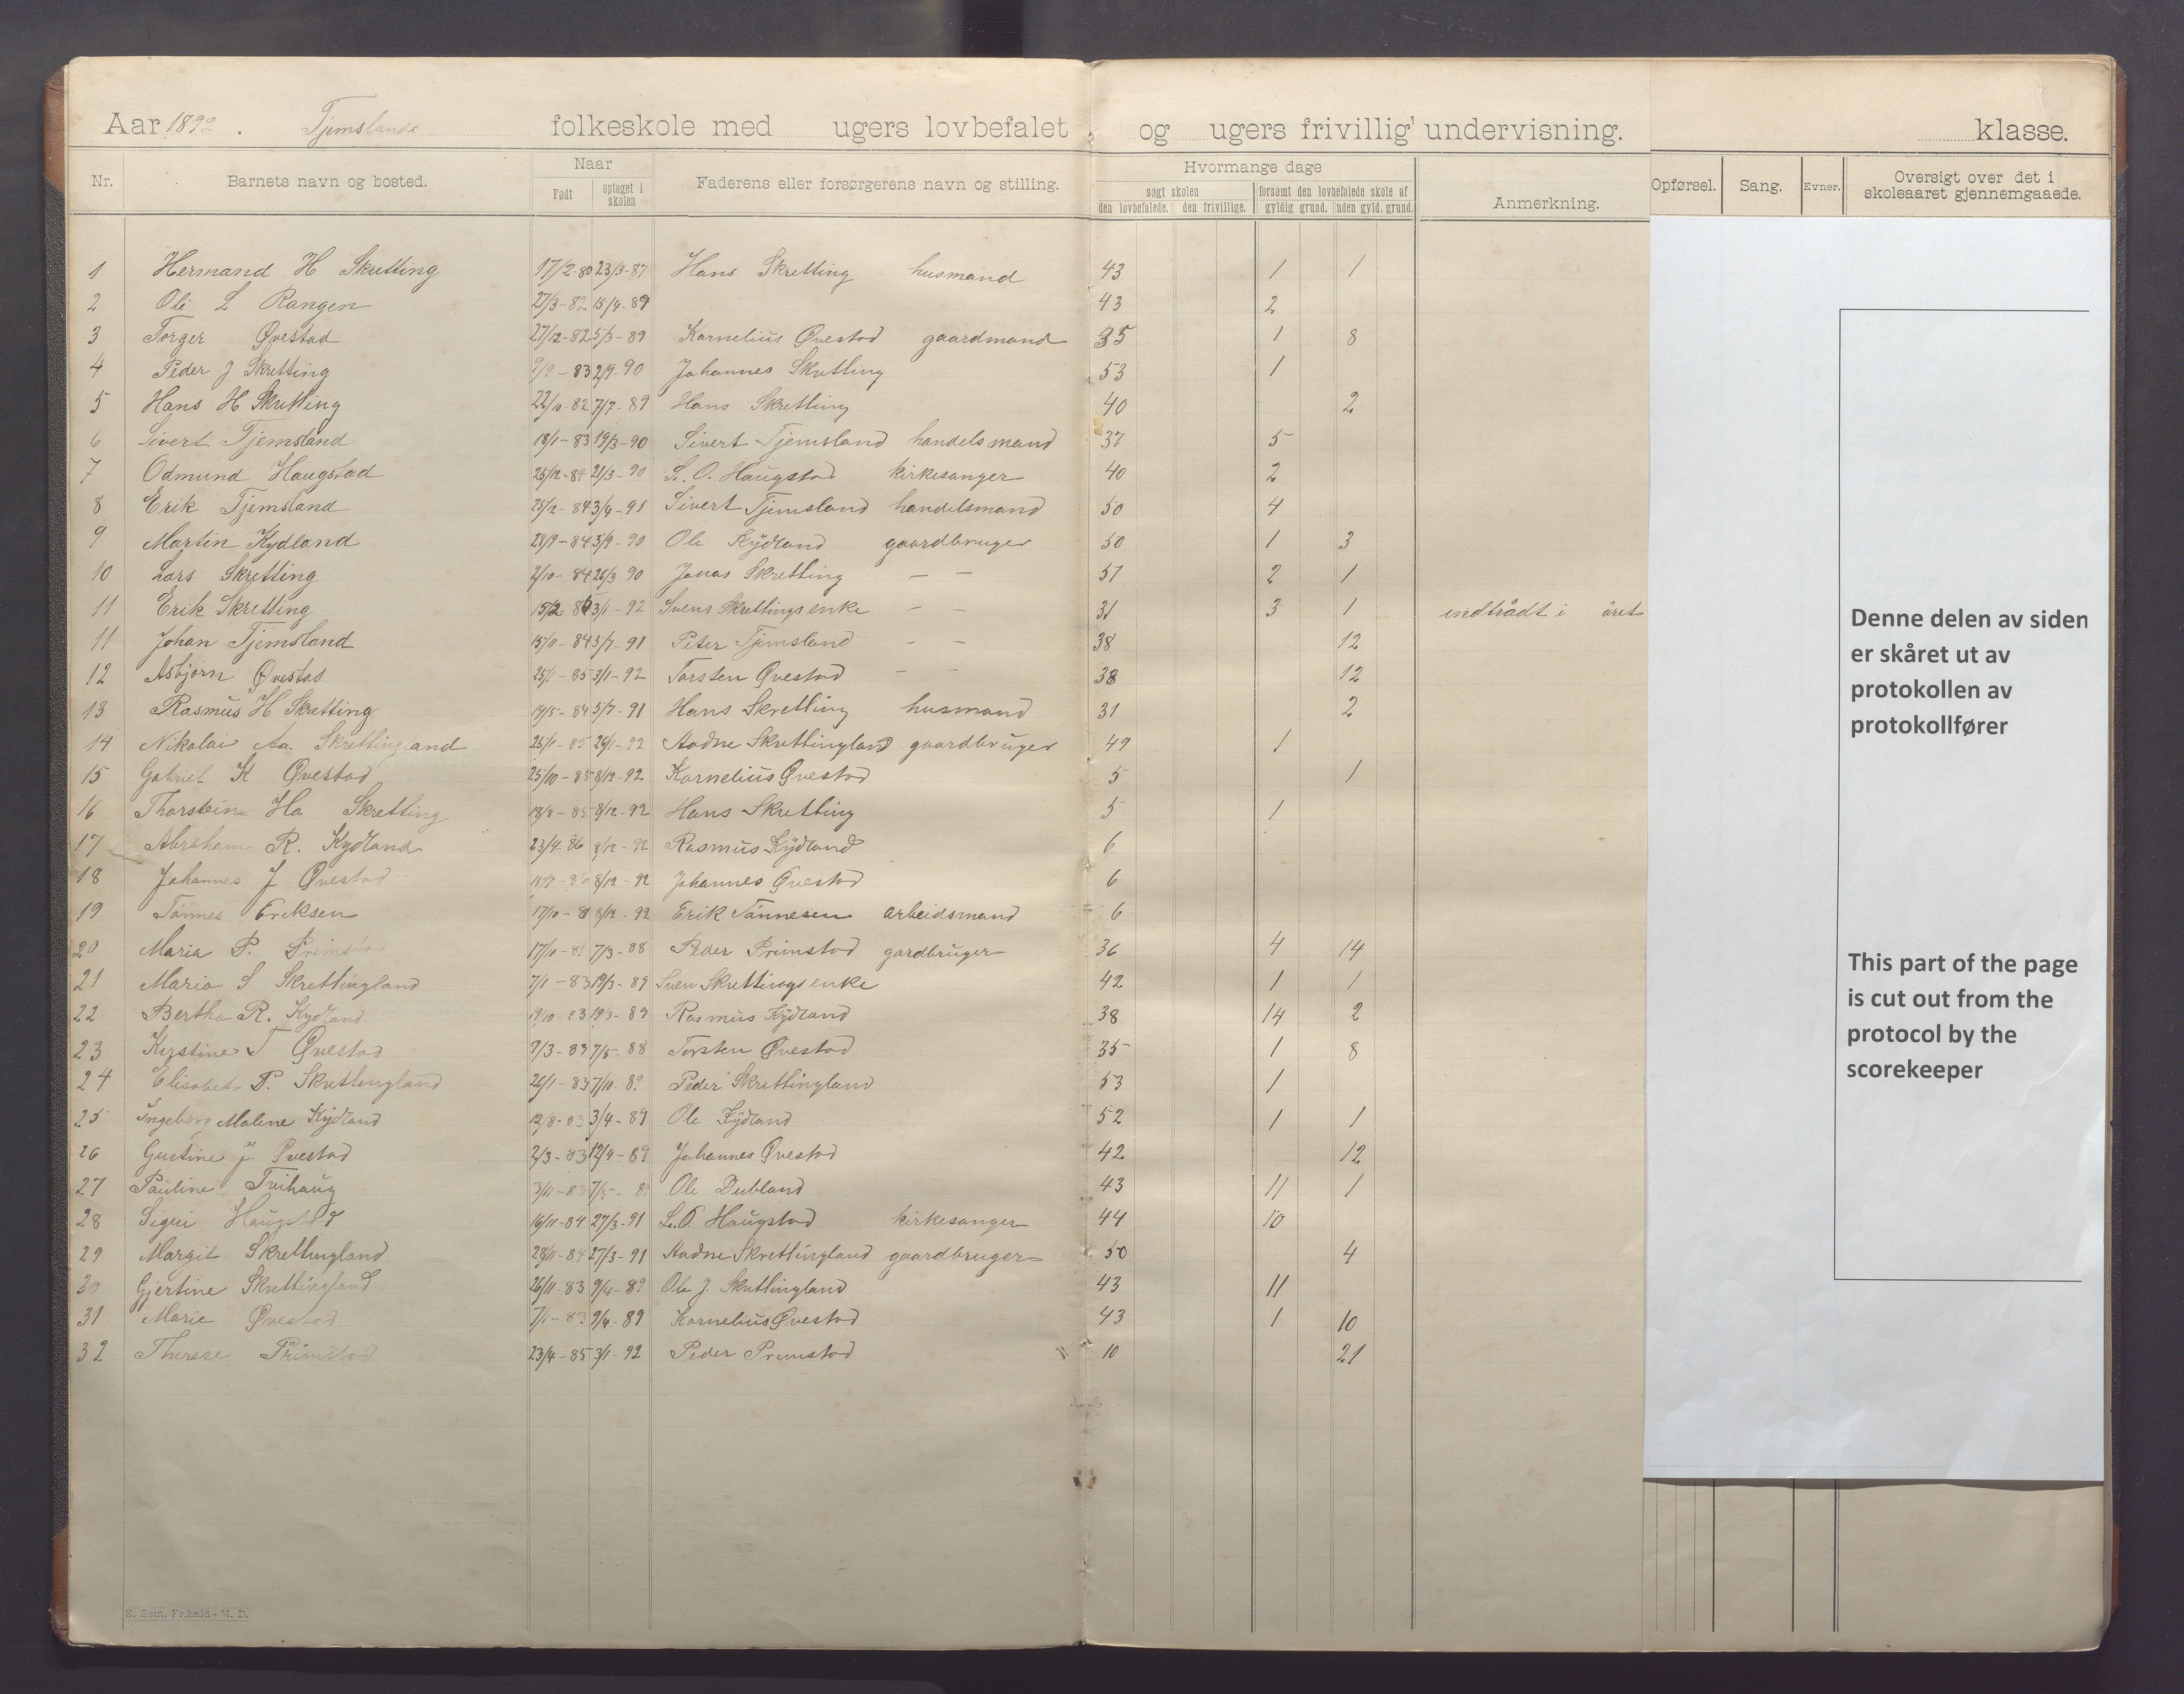 Aar 1892. Tjemslands folkeskole med ugers lovbefalet og ugers frivillig undervisning. klasse.
Nr. Barnets navn og bosted. Naar Født optaget i skolen Faderens eller forsørgerens navn og stilling. Hvormange dage søgt skolen den lovbefalede. den frivillige. forsømt den lovbefalede skole af gyldig grund. uden gyld. grund. Anmerkning. Opførsel. Sang. Evner. Oversigt over det i skoleaaret gjennemgaaede.
1 Hermand H Skretting 17/2-80 23/3-87 Hans Skretting husmand 43 1 1
2 Ole L Rangen 27/3-82 15/4-89 43 2
3 Torger Øvestad 27/12-82 5/3-89 Kornelius Øvestad gaardmand 35 1 8
4 Peder J Skretting 9/9-83 2/9-90 Johannes Skretting 53 1
5 Hans H Skretting 22/10-82 7/7-89 Hans Skretting 40 2
6 Sivert Tjemsland 18/1-83 19/3-90 Sivert Tjemsland handelsmand 37 5
7 Odmund Haugstad 25/12-84 21/3-90 S. O. Haugstad kirkesanger 40 2
8 Erik Tjemsland 25/12-84 3/4-91 Sivert Tjemsland handelsmand 50 4
9 Martin Kydland 28/9-84 3/9-90 Ole Kydland gaardbruger 50 1 3
10 Lars Skretting 2/10-84 26/3 90 Jonas Skretting — — 57 2 1
11 Erik Skretting 15/2 86 3/1-92 Svens Skrettings enke — — 31 3 1 indtrådt i året
11 Johan Tjemsland 15/11-84 5/7-91 Peter Tjemsland — — 38 12
12 Asbjørn Øvestad 25/1-85 3/1-92 Torsten Øvestad — — 38 12
13 Rasmus H Skretting 14/5-84 5/7-91 Hans Skretting husmand 31 2
14 Nikolai Aa. Skrettingland 26/1-85 26/1-92 Aadne Skrettingland gaardbruger 49 1
15 Gabriel K Øvestad 25/10-85 8/12-92 Kornelius Øvestad 5 1
16 Thorstein Ha Skretting 18/8-85 8/12-92 Hans Skretting 5 1
17 Abraham R. Kydland 23/4-86 8/12-92 Rasmus Kydland 6
18 Johannes J Øvestad 8/12-92 Johannes Øvestad 6
19 Tønnes Eriksen 17/10-8 8/12-92 Erik Tønnesen arbeidsmand 6
20 Maria P. Primstad 17/10-8 7/3-88 Peder Primstad gardbruger 36 4 14
21 Maria S Skrettingland 7/1-83 19/3-89 Sven Skrettings enke 42 1 1
22 Bertha R. Kydland 19/10-83 19/3-89 Rasmus Kydland 38 14 2
23 Kirstine T Øvestad 9/3-83 7/5-88 Torsten Øvestad 35 1 8
24 Elisabet P. Skrettingland 26/1-83 7/10-89 Peder Skrettingland 53 1
25 Ingeborg Malene Kydland 12/8-83 3/4-89 Ole Kydland 52 1 1
26 Gustine J. Øvestad 2/3-83 12/4-89 Johannes Øvestad 42 12
27 Pauline Tvihaug 3/11-83 7/5-8 Ole Dubland 43 11 1
28 Sigri Haugstad 16/11-84 27/3-91 L. O. Haugstad kirkesanger 44 10
29 Margit Skrettingland 28/11-84 27/3-91 Aadne Skrettingland gaardbruger 50 4
30 Gjertine Skrettingland 26/11-83 9/4-89 Ole J. Skrettingland 43 11
31 Marie Øvestad 7/1-83 9/4-89 Kornelius Øvestad 43 1 10
32 Therese Primstad 23/4-85 3/1-92 Peder Primstad 10 21
E. Sem, Fr.hald - M. D.
Denne delen av siden
er skåret ut av
protokollen av
protokollfører
This part of the page
is cut out from the
protocol by the
scorekeeper